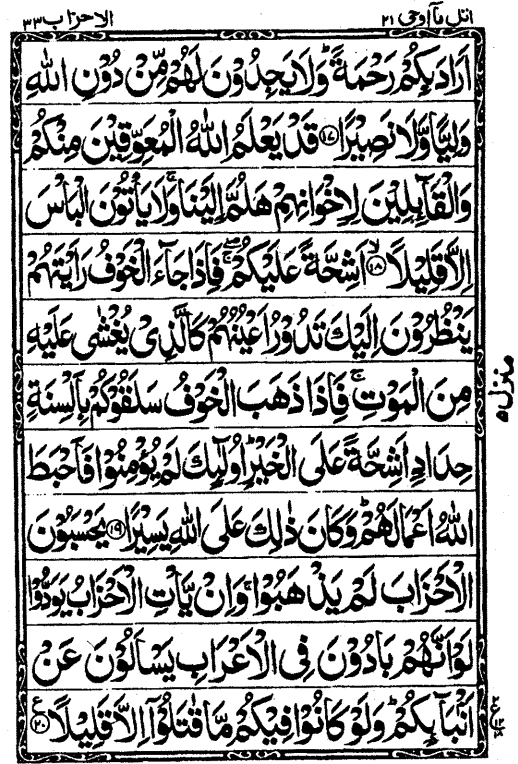 اتل ماۤ اوحی ۲۱
الاحزاب ۳۳
اَرَادَ بِكُمْ رَحْمَةً ؕ وَلَا يَجِدُوْنَ لَهُمْ مِّنْ دُوْنِ اللّٰهِ
وَلِيًّا وَّلَا نَصِيْرًا ۱۷ قَدْ يَعْلَمُ اللّٰهُ الْمُعَوِّقِيْنَ مِنْكُمْ
وَالْقَآئِلِيْنَ لِاِخْوَانِهِمْ هَلُمَّ اِلَيْنَا ۚ وَلَا يَاْتُوْنَ الْبَاْسَ
اِلَّا قَلِيْلًا ۙ ۱۸ اَشِحَّةً عَلَيْكُمْ ۖۚ فَاِذَا جَآءَ الْخَوْفُ رَاَيْتَهُمْ
يَنْظُرُوْنَ اِلَيْكَ تَدُوْرُ اَعْيُنُهُمْ كَالَّذِيْ يُغْشٰى عَلَيْهِ
مِنَ الْمَوْتِ ۚ فَاِذَا ذَهَبَ الْخَوْفُ سَلَقُوْكُمْ بِاَلْسِنَةٍ
حِدَادٍ اَشِحَّةً عَلَى الْخَيْرِ ؕ اُولٰٓئِكَ لَمْ يُؤْمِنُوْا فَاَحْبَطَ
اللّٰهُ اَعْمَالَهُمْ ؕ وَكَانَ ذٰلِكَ عَلَى اللّٰهِ يَسِيْرًا ۱۹ يَحْسَبُوْنَ
الْاَحْزَابَ لَمْ يَذْهَبُوْا ۚ وَاِنْ يَّاْتِ الْاَحْزَابُ يَوَدُّوْا
لَوْ اَنَّهُمْ بَادُوْنَ فِى الْاَعْرَابِ يَسْاَلُوْنَ عَنْ
اَنْۢبَآئِكُمْ ؕ وَلَوْ كَانُوْا فِيْكُمْ مَّا قٰتَلُوْۤا اِلَّا قَلِيْلًا ۲۰ ع
منزل ۵